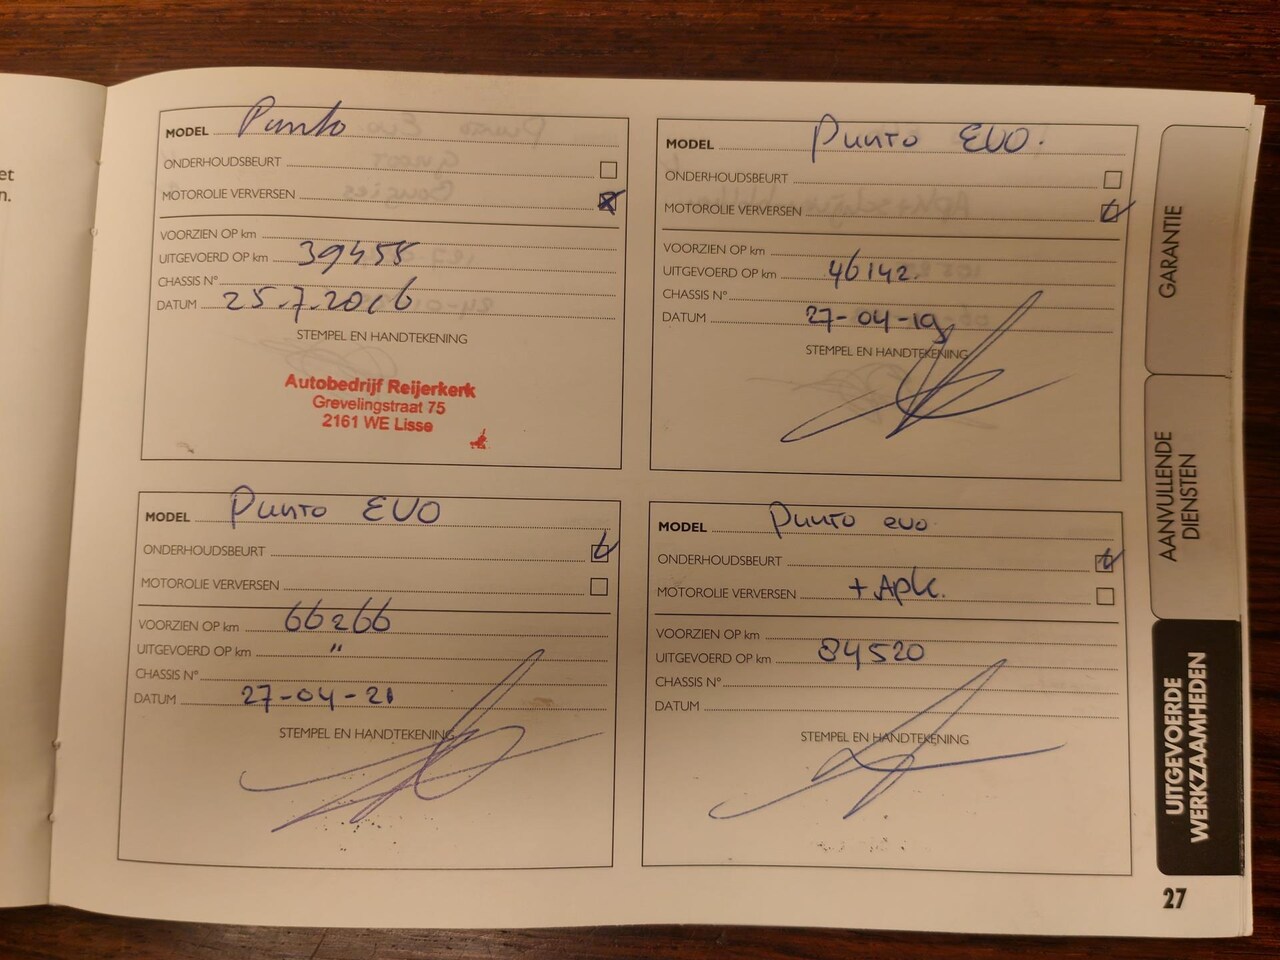 et
n.
MODEL Punto
ONDERHOUDSBEURT
MOTOROLIE VERVERSEN
VOORZIEN OP km
UITGEVOERD OP km 39455
CHASSIS N°
DATUM 25.7.2016
STEMPEL EN HANDTEKENING
Autobedrijf Reijerkerk
Grevelingstraat 75
2161 WE Lisse
MODEL Punto EVO.
ONDERHOUDSBEURT
MOTOROLIE VERVERSEN
VOORZIEN OP km
UITGEVOERD OP km 46142.
CHASSIS N°
DATUM 27-04-19
STEMPEL EN HANDTEKENING
MODEL Punto EVO
ONDERHOUDSBEURT
MOTOROLIE VERVERSEN
VOORZIEN OP km 66266
UITGEVOERD OP km "
CHASSIS N°
DATUM 27-04-21
STEMPEL EN HANDTEKENING
MODEL Punto evo
ONDERHOUDSBEURT
MOTOROLIE VERVERSEN + Apk.
VOORZIEN OP km
UITGEVOERD OP km 84520
CHASSIS N°
DATUM
STEMPEL EN HANDTEKENING
GARANTIE
AANVULLENDE
DIENSTEN
UITGEVOERDE
WERKZAAMHEDEN
27